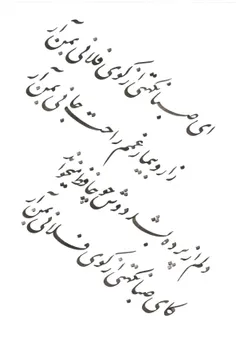 ای صبا نکهتی از کوی فلانی بمن آر
زار و بیمار غمم راحت جانی بمن آر
دلم از پرده بشد دوش چو حافظ میخواند
کای صبا نکهتی از کوی فلانی بمن آر